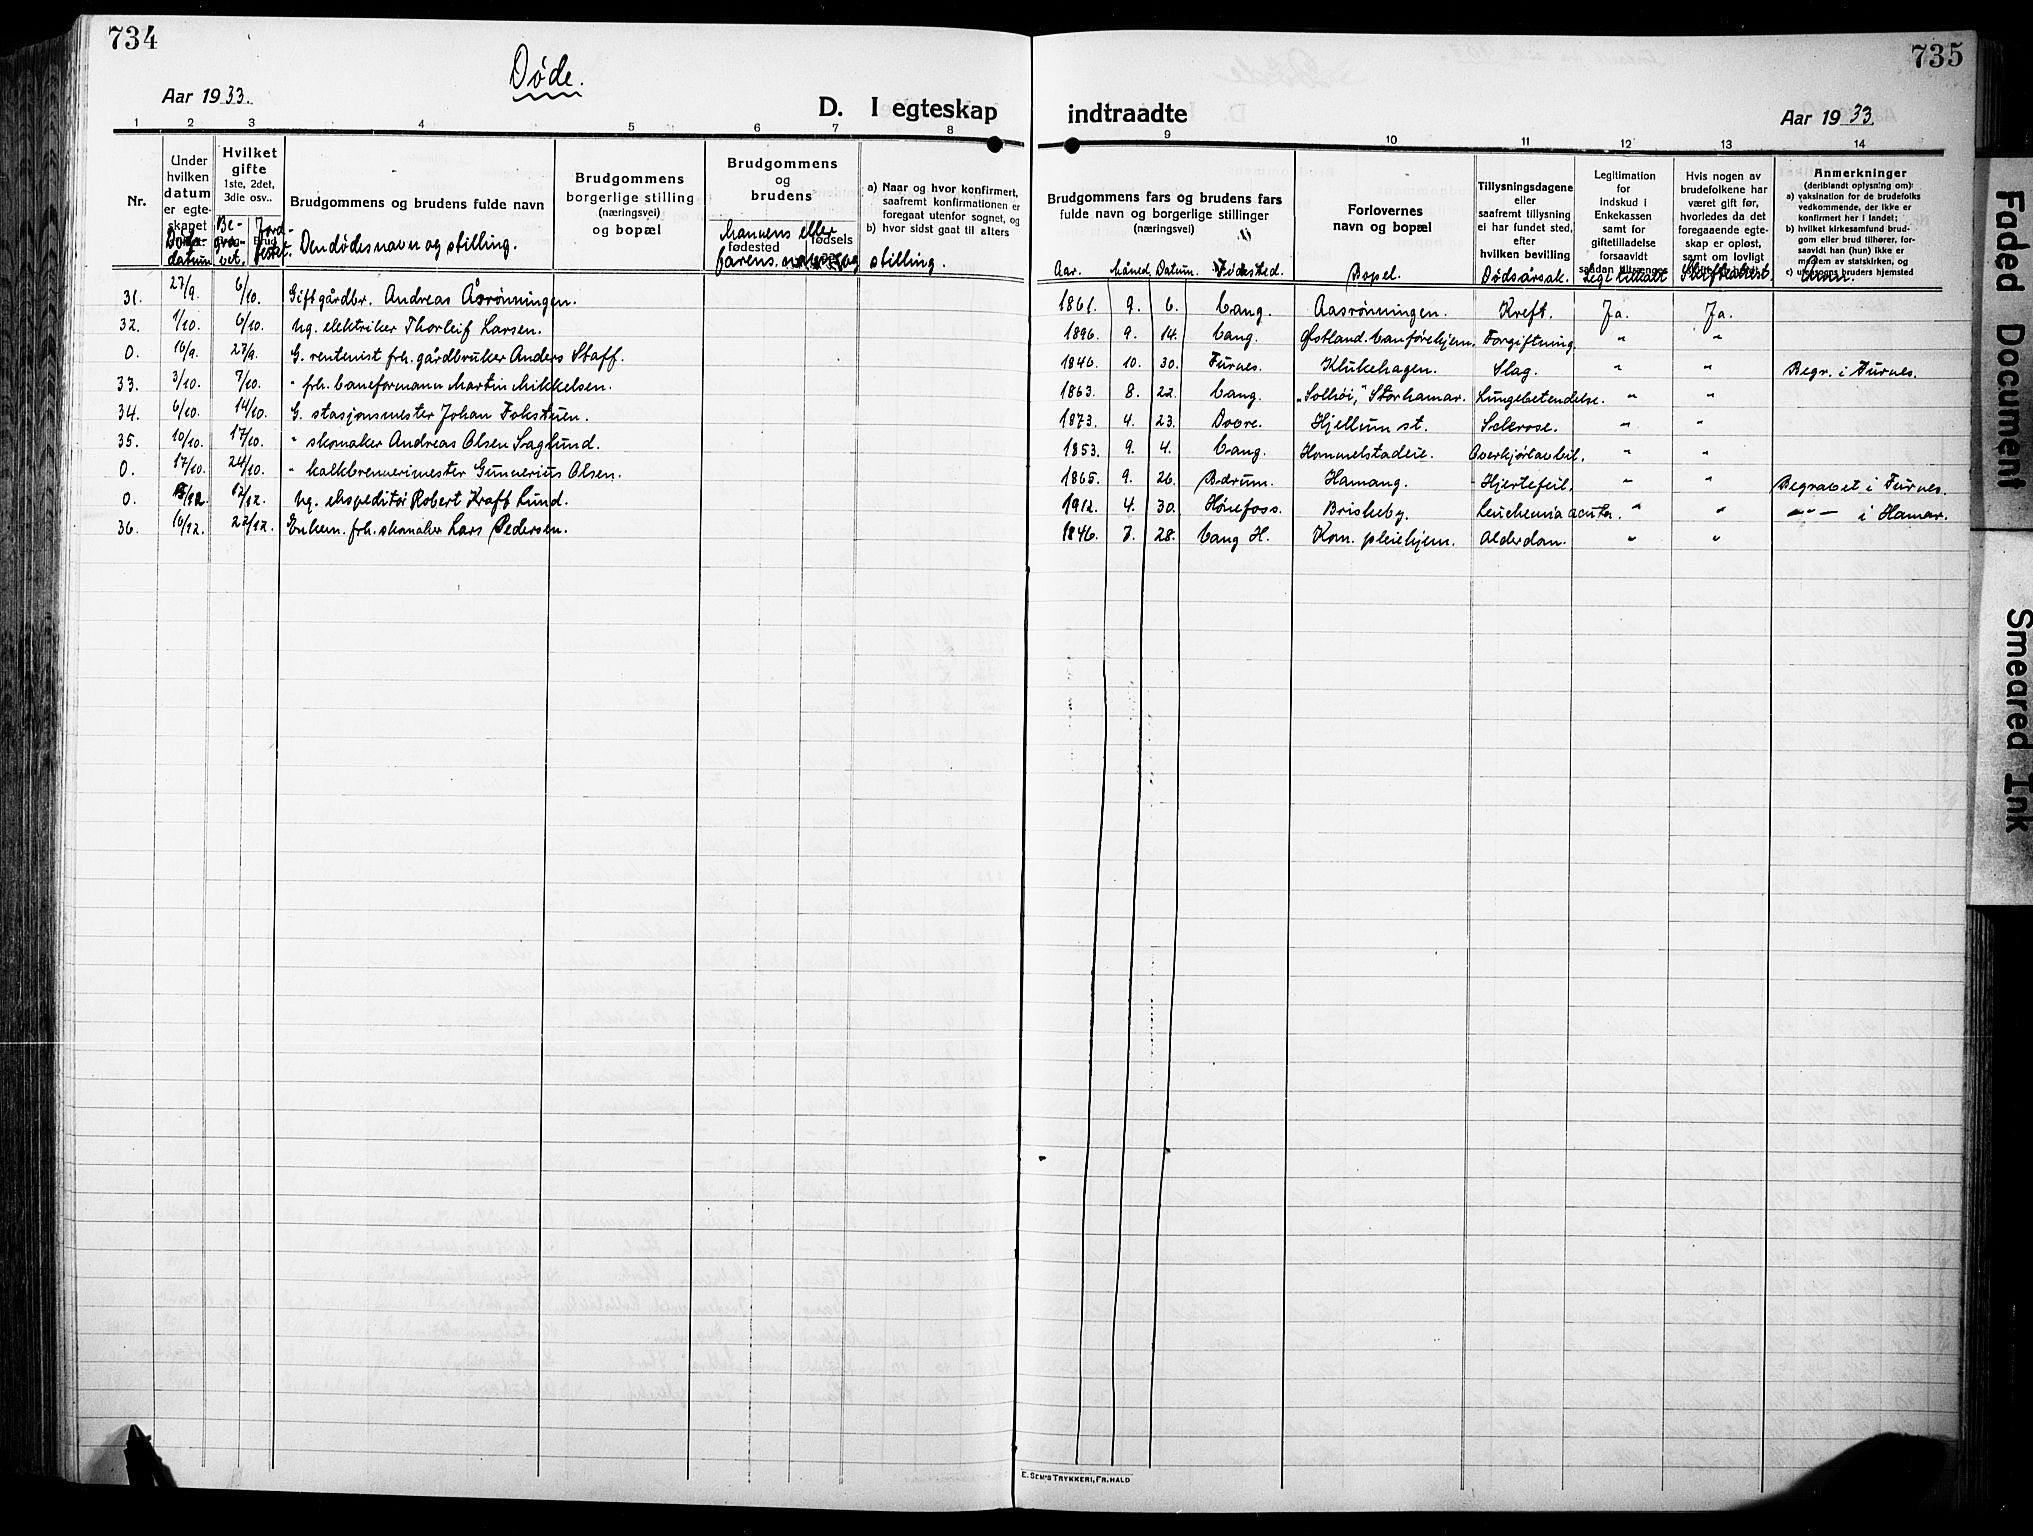 734
Døde.
Aar 1933.
D. I egteskap
1 2 3 4 5 6 7 8
Nr.
Under hvilken datum er egteskapet
Dødsdatum
Hvilket gifte 1ste, 2det, 3die osv..
Begravet.
Jordfestet.
Brudgommens og brudens fulde navn
Den dødes navn og stilling.
Brudgommens borgerlige stilling (næringsvei) og bopæl
Brudgommens og brudens
fødested
fødsels
Mannens eller farens navn og stilling.
a) Naar og hvor konfirmert, saafremt konfirmationen er foregaat utenfor sognet, og
b) hvor sidst gaat til alters
31. 27/9. 6/10. Gift gårdbr. Andreas Åsrønningen.
32. 1/10. 6/10. Ug. elektriker Thorleif Larsen.
0. 16/9. 27/9. G. rentenist frh. gårdbruker Anders Staff.
33. 3/10. 7/10. " frh. baneformann Martin Mikkelsen.
34. 6/10. 14/10. G. stasjonsmester Johan Fokstuen.
35. 10/10. 17/10. " skomaker Andreas Olsen Saglund.
0. 17/10. 24/10. " kalkbrennerimester Gunnerius Olsen.
0. /12. 12/12. Ug. ekspeditør Robert Kraft Lund.
36. 16/12. 22/12. Enkem. frh. skomaker Lars Pedersen.
735
indtraadte
Aar 1933.
9 10 11 12 13 14
Brudgommens fars og brudens fars fulde navn og borgerlige stillinger (næringsvei)
Aar. Måned. Datum. Fødested.
Forlovernes navn og bopæl
Bopel.
Tillysningsdagene eller saafremt tillysning ei har fundet sted, efter hvilken bevilling
Dødsårsak.
Legitimation for indskud i Enkekassen samt for giftetilladelse forsaavidt saadan tiltrænges
Lege tilkalt
Hvis nogen av brudefolkene har været gift før, hvorledes da det foregaaende egteskap er opløst, samt om lovlig
Skifteattest.
Anmerkninger
(deriblandt oplysning om):
a) vaksination for de brudefolks vedkommende, der ikke er konfirmert her i landet;
b) hvilket kirkesamfund brudgom eller brud tilhører, forsaavidt han (hun) ikke er medlem av statskirken, og
c) utensogns bruders hjemsted
Anm.
1861. 9. 6. Vang. Aasrønningen. Kreft. Ja. Ja.
1896. 9. 14. Vang. Østland. Vanførehjem. Forgiftning. " "
1846. 10. 30. Furnes. Klukehagen. Slag. " " Begr. i Furnes.
1863. 8. 22. Vang. "Solhøi," Storhamar. Lungebetendelse. " "
1873. 4. 23. Dovre. Hjellum st. Sclerose. " "
1853. 9. 4. Vang. Hommelstadeie. Overkjørt av bil. " "
1865. 9. 26. Bærum. Hamang. Hjertefeil. " " Begravet i Furnes.
1912. 4. 30. Hønefoss. Briskeby. Leuchemia acuta. " " —"— i Hamar.
1846. 7. 28. Vang H. Kom. pleiehjem. Alderdom. " "
E. SEM'S TRYKKERI, FR.HALD
Faded Document
Smeared Ink